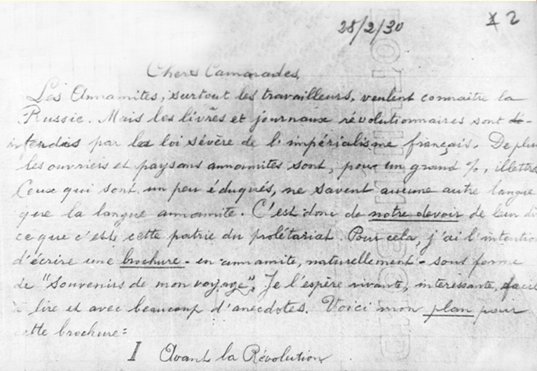 28/2/30
x 2
Chers Camarades,
Les Annamites, surtout les travailleurs, veulent connaitre la
Russie. Mais les livres et journaux révolutionnaires sont
interdits par la loi sévère de l'impérialisme français. De plus
les ouvriers et paysans annamites sont, pour un grand %, illettrés
Ceux qui sont un peu éduqués, ne savent aucune autre langue
que la langue annamite. C'est donc de notre devoir de leur
ce que c'est, cette patrie du prolétariat. Pour cela, j'ai l'intention
d'écrire une brochure - en annamite, naturellement - sous forme
de "Souvenirs de mon voyage". Je l'espère vivante, intéressante, facile
à lire et avec beaucoup d'anecdotes. Voici mon plan pour
cette brochure:
I Avant la Révolution